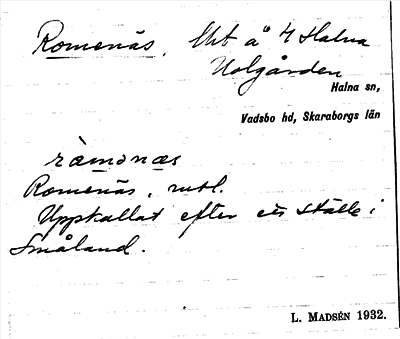 Romenäs, Utt å 4 Halna
Holgården
Halna sn,
Vadsbo hd, Skaraborgs län
ràmɔnæs
Romenäs, mtl.
Uppkallat efter ett ställe i
Småland.
L. MADSÉN 1932.